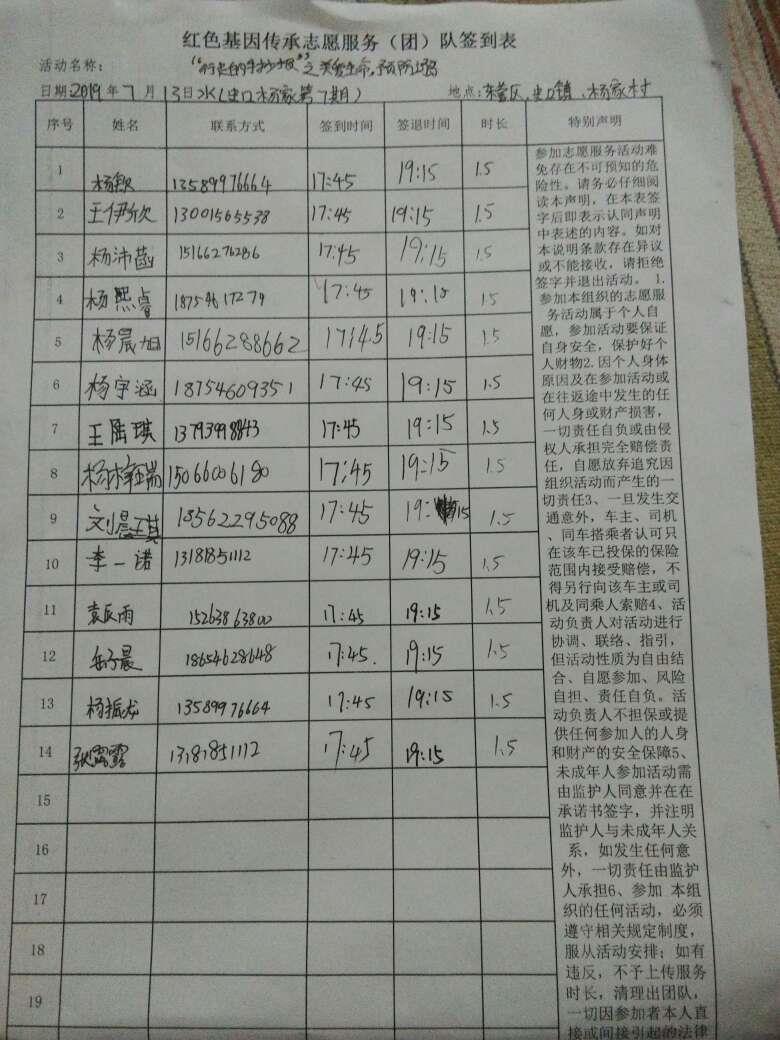 红色基因传承志愿服务（团）队签到表
活动名称： “行走的手抄报”之关爱生命，预防溺
日期 2019年7月13日 （史口杨家第7期） 地点：东营区、史口镇、杨家村
序号 姓名 联系方式 签到时间 签退时间 时长 特别声明
1 杨钦 13589976664 17:45 19:15 1.5
2 王伊欣 13001565538 17:45 19:15 1.5
3 杨沛菡 15166276286 17:45 19:15 1.5
4 杨熙睿 18754617279 17:45 19:15 1.5
5 杨晨旭 15166288662 17:45 19:15 1.5
6 杨宇涵 18754609351 17:45 19:15 1.5
7 王陆琪 13793998843 17:45 19:15 1.5
8 杨 瑞 15066006180 17:45 19:15 1.5
9 刘晨琪 18562295088 17:45 19:15 1.5
10 李一诺 13181851112 17:45 19:15 1.5
11 袁辰雨 15263863800 17:45 19:15 1.5
12 岳子晨 18654628648 17:45. 19:15 1.5
13 杨振龙 13589976664 17:45 19:15 1.5
14 张露露 13181851112 17:45 19:15 1.5
15
16
17
18
19
参加志愿服务活动难
免存在不可预知的危
险性。请务必仔细阅
读本声明，在本表签
字后即表示认同声明
中表述的内容。如对
本说明条款存在异议
或不能接收，请拒绝
签字并退出活动。 1.
参加本组织的志愿服
务活动属于个人自
愿，参加活动要保证
自身安全，保护好个
人财物2.因个人身体
原因及在参加活动或
在往返途中发生的任
何人身或财产损害，
一切责任自负或由侵
权人承担完全赔偿责
任，自愿放弃追究因
组织活动而产生的一
切责任3、一旦发生交
通意外，车主、司机
、同车搭乘者认可只
在该车已投保的保险
范围内接受赔偿，不
得另行向该车主或司
机及同乘人索赔4、活
动负责人对活动进行
协调、联络、指引，
但活动性质为自由结
合、自愿参加、风险
自担、责任自负。活
动负责人不担保或提
供任何参加人的人身
和财产的安全保障5、
未成年人参加活动需
由监护人同意并在在
承诺书签字，并注明
监护人与未成年人关
系，如发生任何意
外，一切责任由监护
人承担6、参加 本组
织的任何活动，必须
遵守相关规定制度，
服从活动安排；如有
违反，不予上传服务
时长，清理出团队，
一切因参加者本人直
接或间接引起的法律